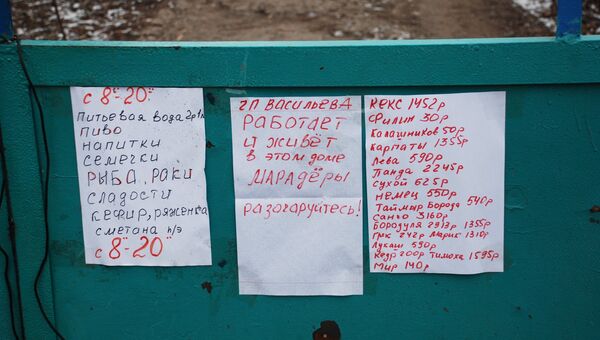 с 8⁰⁰-20⁰⁰
питьевая вода
пиво
напитки
семечки
РЫБА, РАКИ
сладости
кефир, ряженка
сметана п/э
с 8⁰⁰-20⁰⁰
ЧП ВАСИЛЬЕВА
Работает
и живёт
в этом доме
МАРАДЁРЫ
разочаруйтесь!
Кекс 1452р
Филин 30р
Калашников 50р
Карпаты 1355р
Лева 590р
Панда 2245р
Сухой 625р
Немец 550р
Таймыр Борода 540р
Санчо 3160р
Бородуля 2913р 1355р
Грк 242р Марик 1310р
Лукаш 590р
Кедр 200р Тимоха 1595р
Мир 140р